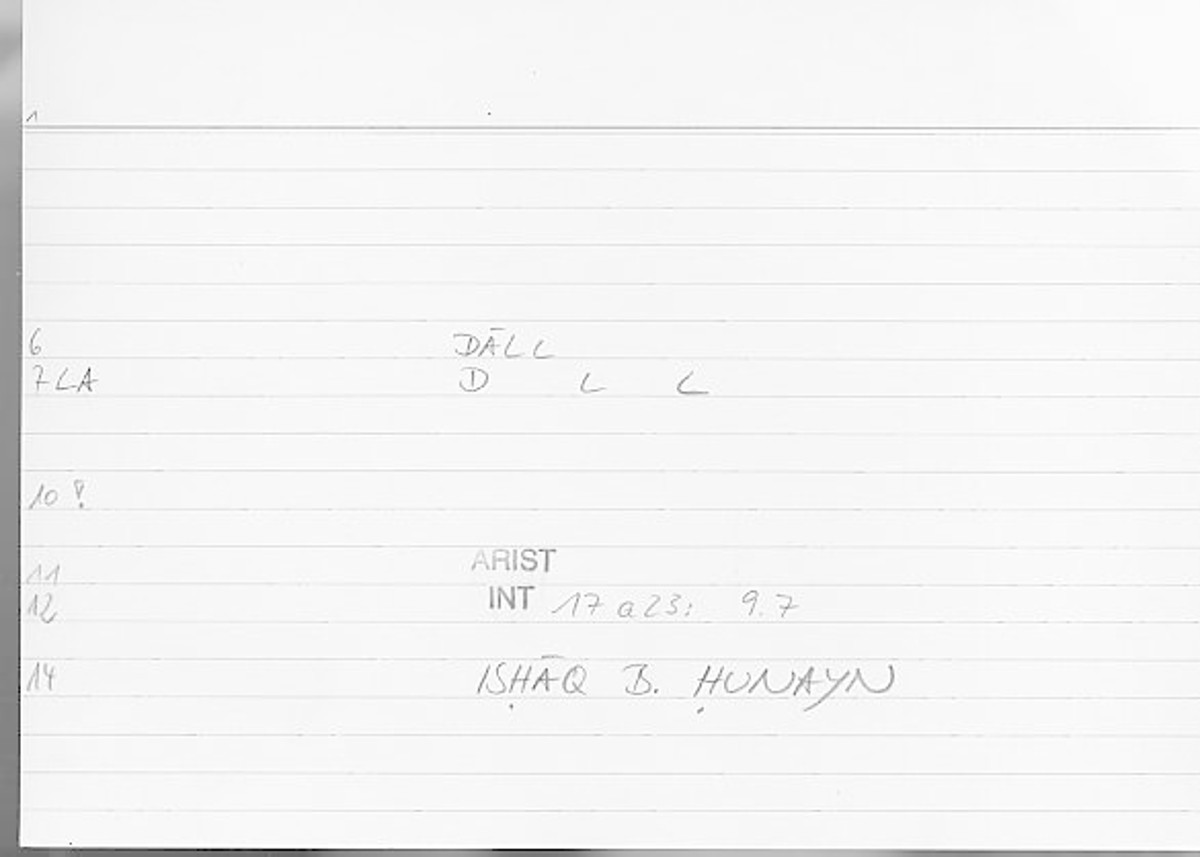 1
6 DĀLL
7 LA D L L
10 !
11 ARIST
12 INT 17 a 23: 9.7
14 ISḤĀQ B. ḤUNAYN